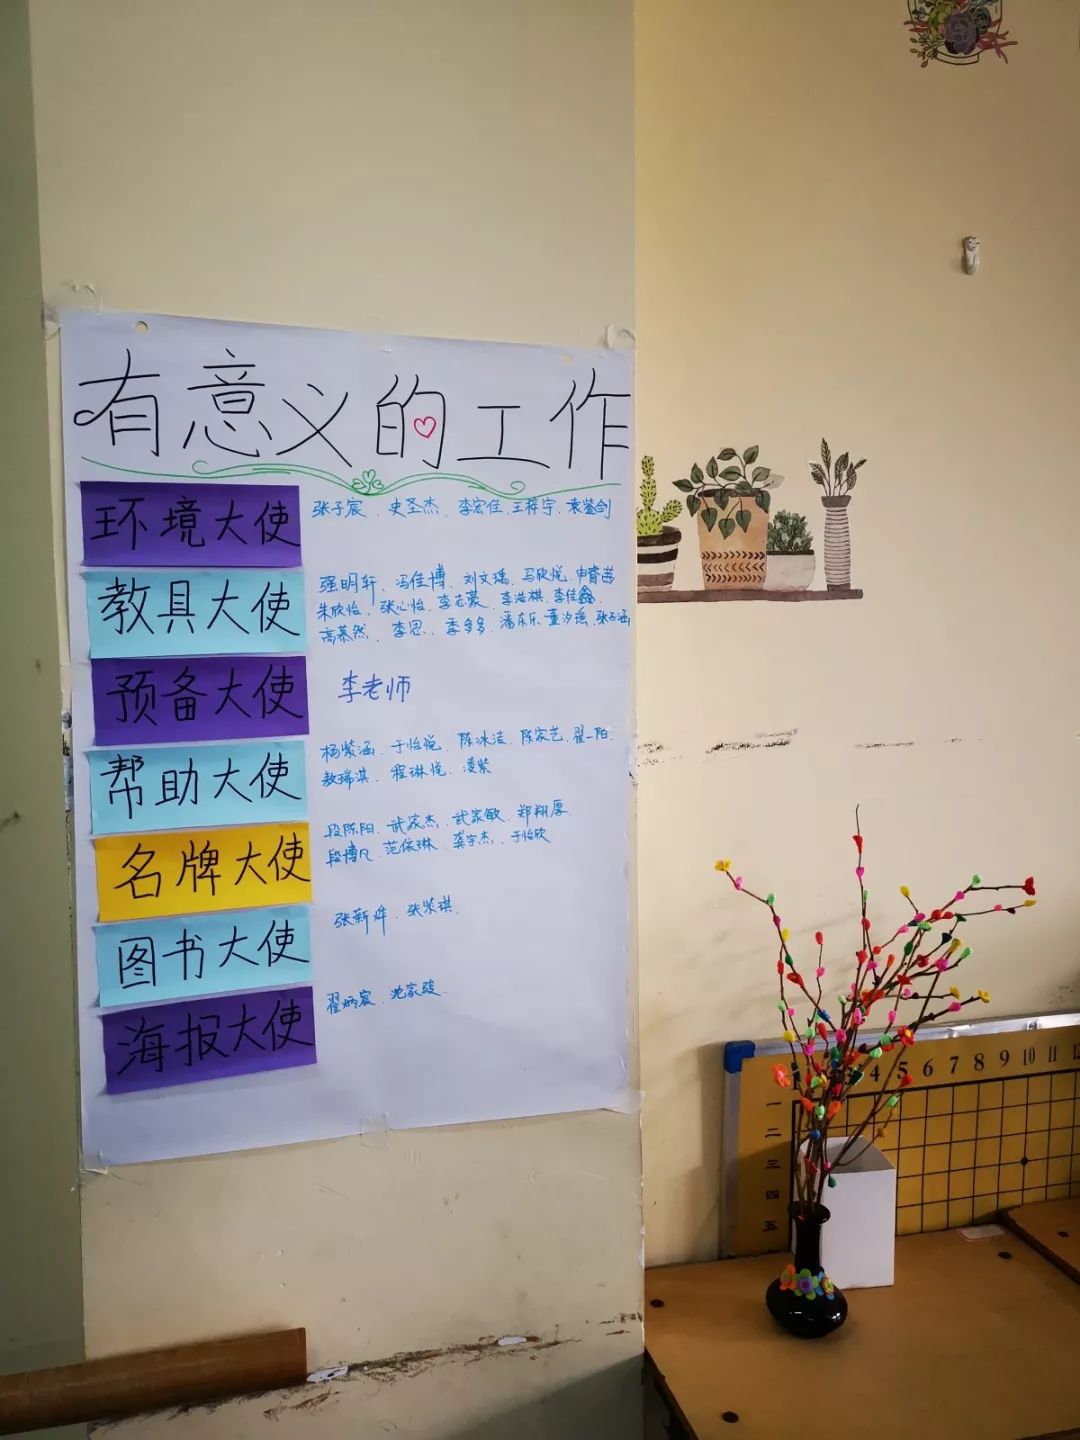 有意义的工作
环境大使
张子宸、史圣杰、李宏佳、王梓宇、袁鉴剑
教具大使
强明轩、冯佳博、刘文瑶、马欣悦、申育茜
朱欣怡、张心怡、李志豪、李浩棋、李佳鑫、
高慕然、李思、季多多、潘东乐、董汐瑶、张子涵
预备大使
李老师
帮助大使
杨紫涵、于怡悦、陈冰洁、陈家艺、翟一阳、
敖瑞淇、程琳悦、凌紫
名牌大使
段陈阳、武家杰、武家敏、郑翔厚、
段博凡、范依琳、龚宇杰、于怡欣
图书大使
张新烨、张紫琪、
海报大使
翟炳宸、沈家骏
3 4 5 6 7 8 9 10 11
一
二
三
四
五